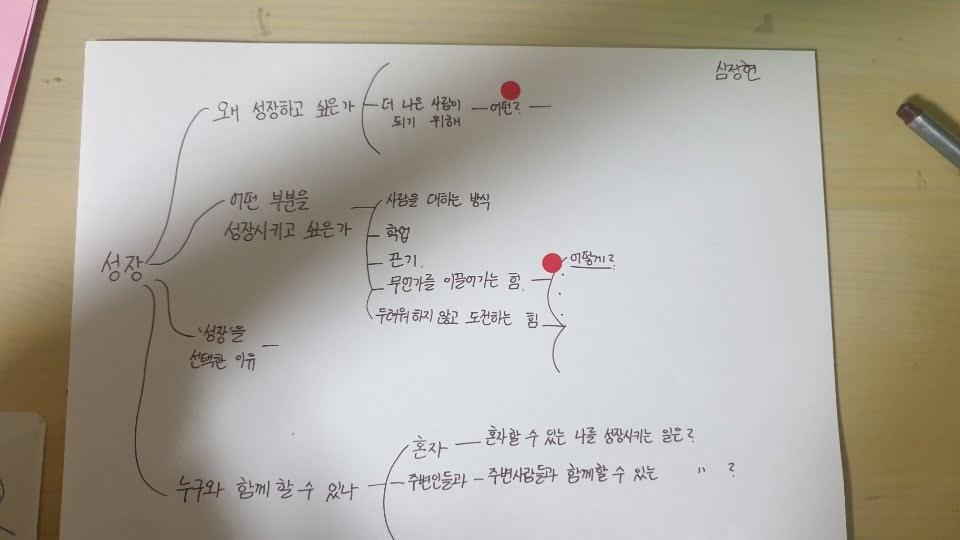 심정현
왜 성장하고 싶은가
더 나은 사람이
되기 위해
어떤?
어떤 부분을
성장시키고 싶은가
사람을 대하는 방식
학업
끈기
무언가를 이끌어가는 힘
두려워하지 않고 도전하는 힘
어떻게?
성장
'성장'을
선택한 이유
누구와 함께 할 수 있나
혼자
혼자 할 수 있는 나를 성장시키는 일은?
주변인들과
주변사람들과 함께할 수 있는 " ?